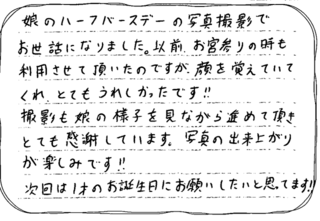 娘のハーフバースデーの写真撮影で
お世話になりました。以前、お宮参りの時も
利用させて頂いたのですが、顔を覚えていて
くれ、とてもうれしかったです!!
撮影も娘の様子を見ながら進めて頂き
とても感謝しています。写真の出来上がり
が楽しみです!!
次回は1才のお誕生日にお願いしたいと思てます!!